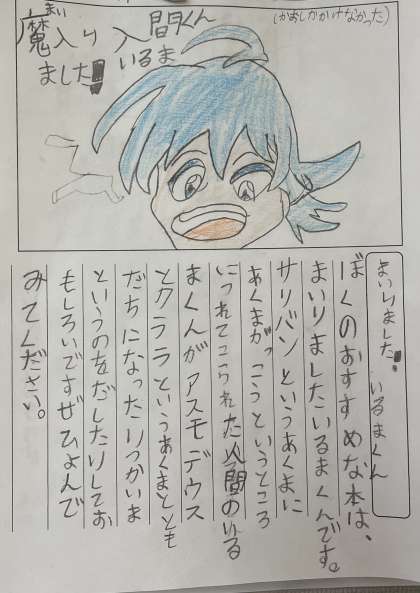 魔入り
まい
ました!
入間くん
いるま
(かおしかかけなかった)
まいりました!いるまくん
ぼくのおすすめな本は、
まいりましたいるまくんです。
サリバンというあくまに
あくまがっこうというところ
につれてこられた人間のいる
まくんがアスモデウス
とクララというあくまととも
だちになったりつかいま
というのをだしたりしてお
もしろいですぜひよんで
みてください。